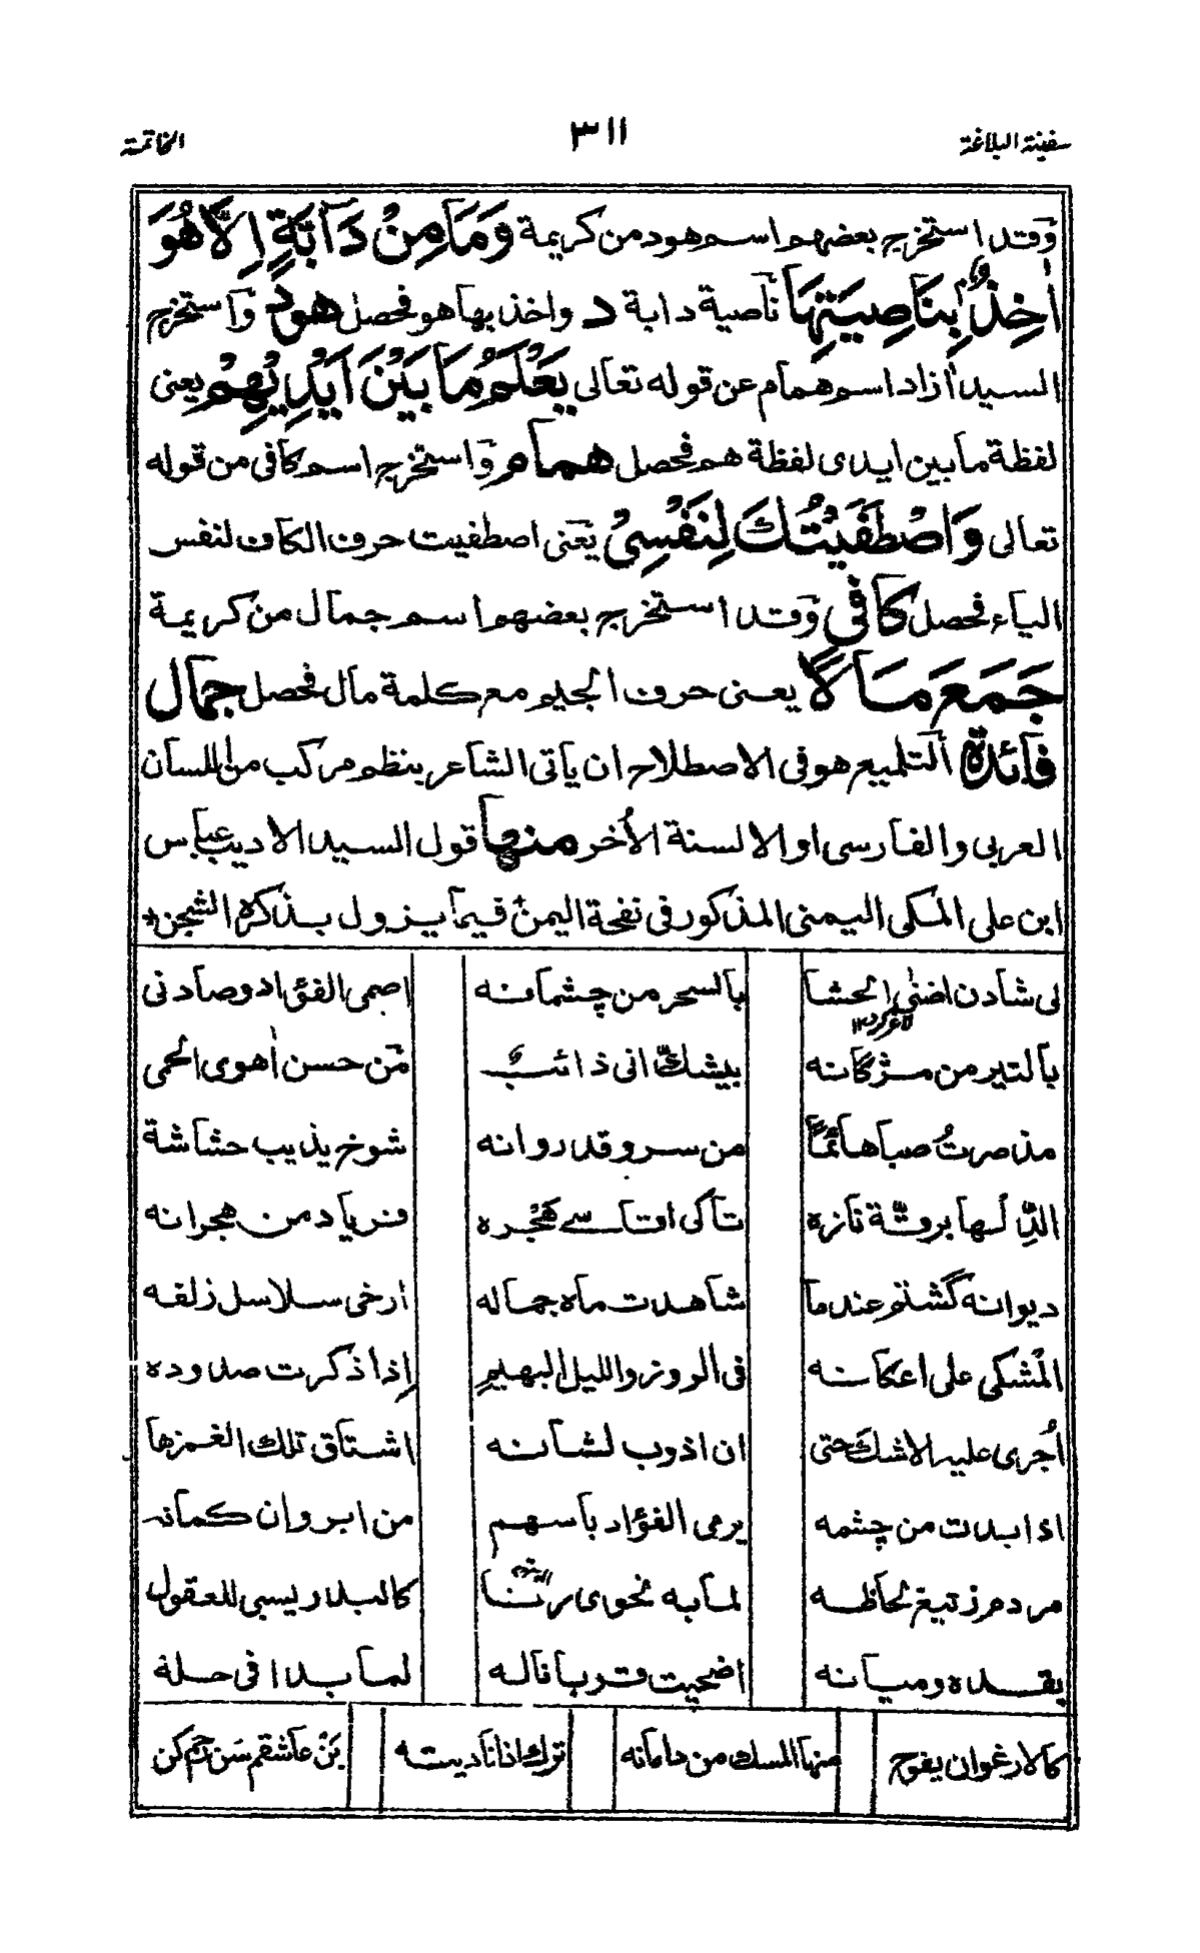 سفينة البلاغة ٣١١ الخاتمة
وقد استخرج بعضهم اسم هود من كريمة وَمَا مِنْ دَآبَّةٍ اِلَّا هُوَ
اٰخِذٌۢ بِنَاصِيَتِهَا ناصية دابة د واخذ بها هو فحصل هود واستخرج
السيد اٰزاد اسم همام عن قوله تعالى يَعْلَمُ مَا بَيْنَ اَيْدِيْهِمْ يعنى
لفظة ما بين ايدى لفظة هم فحصل همام واستخرج اسم كافى من قوله
تعالى وَاصْطَفَيْتُكَ لِنَفْسِىْ يعنى اصطفيت حرف الكاف لنفس
الياء فحصل كافى وقد استخرج بعضهم اسم جمال من كريمة
جَمَعَ مَالًا يعنى حرف الجيم مع كلمة مال فحصل جمال
فائدة التلميع هو فى الاصطلاح ان ياتى الشاعر بنظم مركب من اللسان
العربى والفارسى او الالسنة الأخر منها قول السيد الاديب عباس
ابن على المكى اليمنى المذكور فى نفحة اليمن فيما يزول بذكره الشجن
لى شادن اضنى الحشا بالسحر من چشمانه اصمى الفؤاد وصادنى
لاغر كرد ١٢
بالتير من مژگانه بيشك انى ذائب من حسن اهوى الحمى
مذ صرتُ صبا هائمًا من سرو قد روانه شوخ يذيب حشاشة
الدِّ لها بروتة نازه تاكى اقاسے هجره فرياد من هجرانه
ديوانه گشتم عندما شاهدت ماه جماله ارخى سلاسل زلفه
المشكى على اعكانه فى الروز والليل البهيم اذا ذكرت صدوده
اُجرى عليه الاشك حتى ان اذوب لشانه اشتاق تلك الغمزها
اذا بدت من چشمه يرمى الفؤاد باسهم من ابروان كمانه
مردم ز تيغ لحاظه لما به نحوى رنا كالبدر يسبى للعقول
بقده وميانه اضحيت قربانا له لما بدا فى حلة
كالارغوان يفوح منها المسك من دامانه ترك اذا ناديته بَنْ عاشقم سَن رحم كن